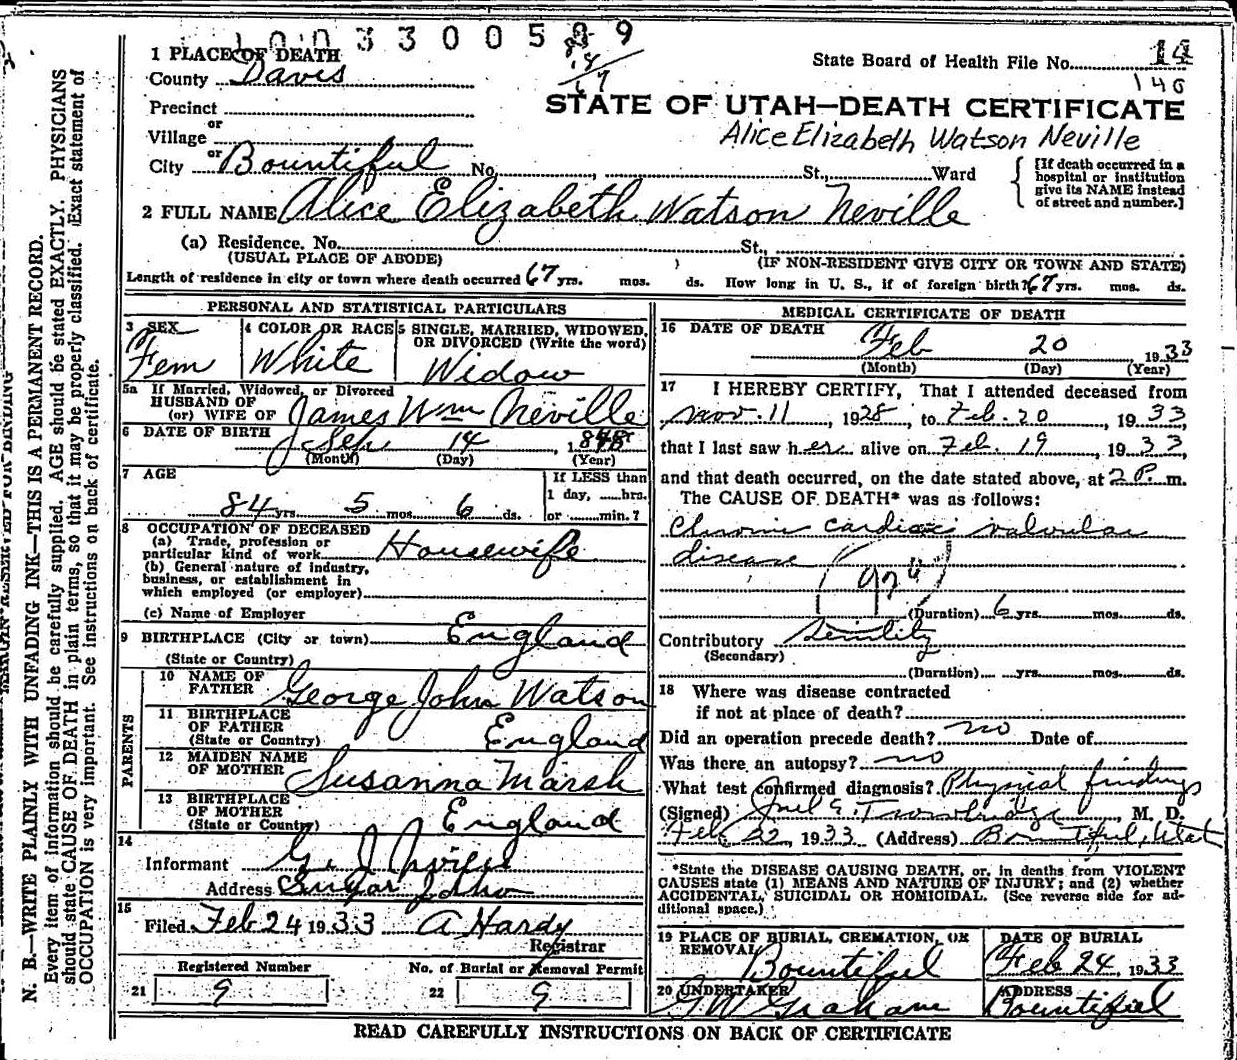 1003300589
1 PLACE OF DEATH
County Davis
Precinct
or
Village
or
City Bountiful No. , St., Ward
State Board of Health File No. 14
146
STATE OF UTAH—DEATH CERTIFICATE
Alice Elizabeth Watson Neville
[If death occurred in a
hospital or institution
give its NAME instead
of street and number.]
2 FULL NAME Alice Elizabeth Watson Neville
(a) Residence. No. St.,
(USUAL PLACE OF ABODE) (IF NON-RESIDENT GIVE CITY OR TOWN AND STATE)
Length of residence in city or town where death occurred 67 yrs. mos. ds. How long in U. S., if of foreign birth? 67 yrs. mos. ds.
PERSONAL AND STATISTICAL PARTICULARS
3 SEX 4 COLOR OR RACE 5 SINGLE, MARRIED, WIDOWED,
OR DIVORCED (Write the word)
Fem White Widow
5a If Married, Widowed, or Divorced
HUSBAND OF
(or) WIFE OF James Wm Neville
6 DATE OF BIRTH Sep 14, 1848
(Month) (Day) (Year)
7 AGE If LESS than
1 day, hrs.
84 yrs 5 mos 6 ds. or min.?
8 OCCUPATION OF DECEASED
(a) Trade, profession or
particular kind of work Housewife
(b) General nature of industry,
business, or establishment in
which employed (or employer)
(c) Name of Employer
9 BIRTHPLACE (City or town) England
(State or Country)
PARENTS
10 NAME OF
FATHER George John Watson
11 BIRTHPLACE
OF FATHER
(State or Country) England
12 MAIDEN NAME
OF MOTHER Susanna Marsh
13 BIRTHPLACE
OF MOTHER
(State or Country) England
14
Informant G. J. Neville
Address Sugar Idaho
15
Filed Feb 24 1933 A Hardy
Registrar
Registered Number No. of Burial or Removal Permit
21 9 22 9
MEDICAL CERTIFICATE OF DEATH
16 DATE OF DEATH
Feb 20 1933
(Month) (Day) (Year)
17 I HEREBY CERTIFY, That I attended deceased from
Nov. 11, 1928, to Feb. 20, 1933,
that I last saw her alive on Feb. 19, 1933,
and that death occurred, on the date stated above, at 2 P. m.
The CAUSE OF DEATH* was as follows:
Chronic cardiac valvular
disease
(Duration) 6 yrs. mos. ds.
Contributory Senility
(Secondary)
(Duration) yrs. mos. ds.
18 Where was disease contracted
if not at place of death?
Did an operation precede death? no Date of
Was there an autopsy? no
What test confirmed diagnosis? Physical findings
(Signed) Trowbridge, M. D.
Feb 22, 1933 (Address) Bountiful, Utah
*State the DISEASE CAUSING DEATH, or, in deaths from VIOLENT
CAUSES state (1) MEANS AND NATURE OF INJURY; and (2) whether
ACCIDENTAL, SUICIDAL OR HOMICIDAL. (See reverse side for ad-
ditional space.)
19 PLACE OF BURIAL, CREMATION, OR
REMOVAL
Bountiful
DATE OF BURIAL
Feb 24, 1933
20 UNDERTAKER
G W Graham
ADDRESS
Bountiful
READ CAREFULLY INSTRUCTIONS ON BACK OF CERTIFICATE
MARGIN RESERVED FOR BINDING
N. B.—WRITE PLAINLY WITH UNFADING INK—THIS IS A PERMANENT RECORD.
Every item of information should be carefully supplied. AGE should be stated EXACTLY. PHYSICIANS
should state CAUSE OF DEATH in plain terms, so that it may be properly classified. Exact statement of
OCCUPATION is very important. See instructions on back of certificate.